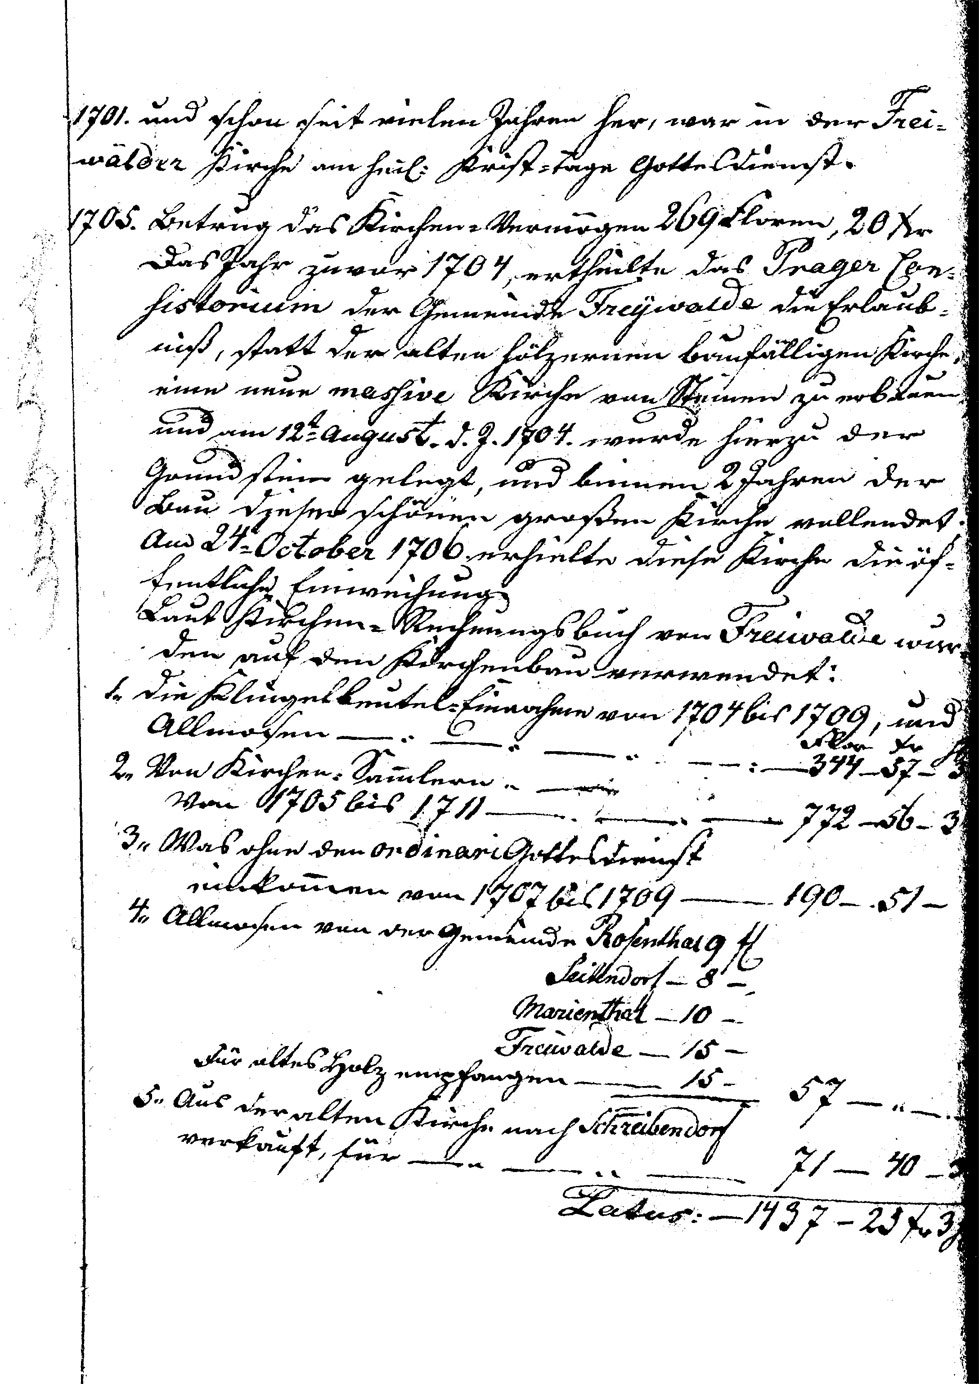 1701. und schon seit vielen Jahren her, war in der Frei-
wälder Kirche am heil: Krist-tage Gottesdienst.
1705. Betrug das Kirchen-Vermögen 269 Floren, 20 Xr
Das Jahr zuvor 1704, ertheilte das Prager Con-
sistorium der Gemeinde Freywalde die Erlaub-
niß, statt der alten hölzernen baufälligen Kirche,
eine neue massive Kirche von Steinen zu erbauen
und am 12t August. d. J. 1704. wurde hierzu der
Grundstein gelegt, und binnen 2 Jahren der
Bau dieser schönen großen Kirche vollendet.
Am 24t October 1706 erhielte diese Kirche die öf-
fentliche Einweihung
Laut Kirchen-Rechnungsbuch von Freiwalde wur-
den auf den Kirchenbau verwendet:
1. die Klingelbeutel-Einnahme von 1704 bis 1709, und
Flor xr
Allmosen — 344 — 57 — 3
2. Von Kirchen-Sammlern
von 1705 bis 1711 — 772 — 56 — 3
3. Was ohne den ordinari Gottesdienst
einkommen von 1707 bis 1709 — 190 — 51 —
4. Allmosen von der Gemeinde Rosenthal 9 fl
Seitendorf — 8 —
Marienthal — 10 —
Freiwalde — 15 —
Für altes Holz empfangen — 15 — 57 — " —
5. Aus der alten Kirche nach Schreibendorf
verkauft, für — 71 — 40 — 3
Latus: — 1437 — 25 xr 3